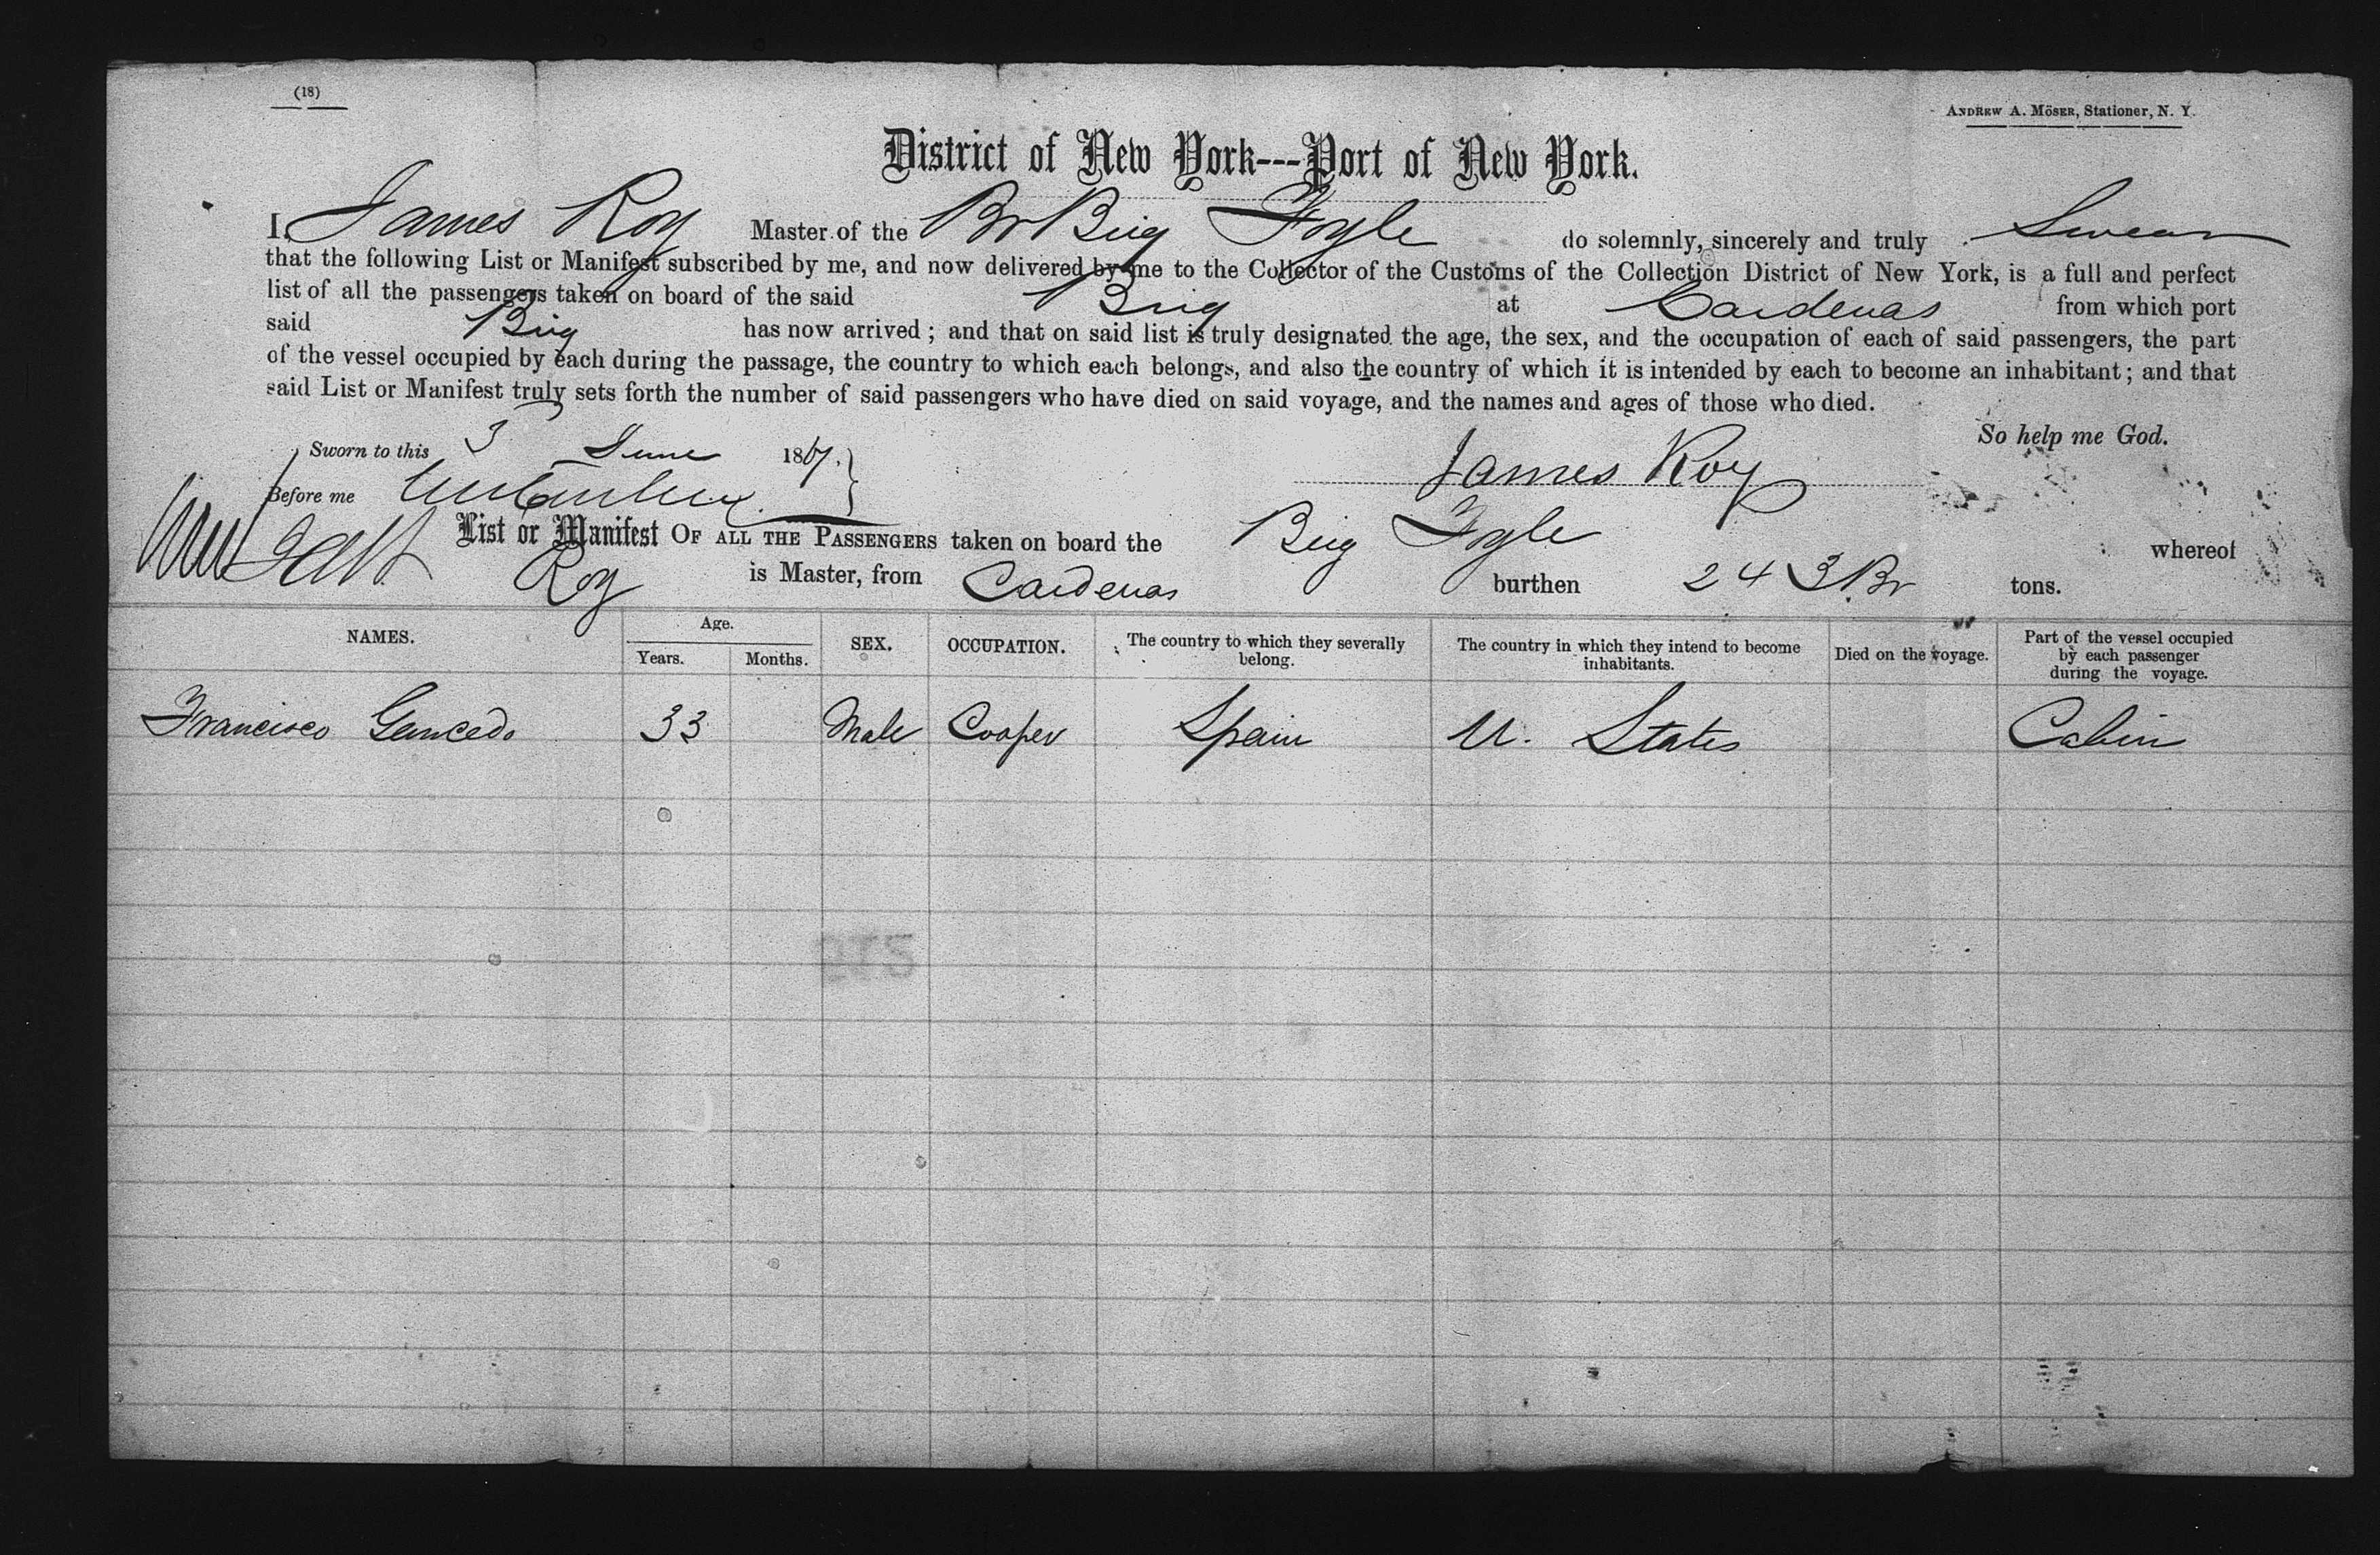 (18)
ANDREW A. MÖSER, Stationer, N. Y.
District of New York---Port of New York.
I, James Roy Master of the Br Brig Foyle do solemnly, sincerely and truly Swear
that the following List or Manifest subscribed by me, and now delivered by me to the Collector of the Customs of the Collection District of New York, is a full and perfect
list of all the passengers taken on board of the said Brig at Cardenas from which port
said Brig has now arrived; and that on said list is truly designated the age, the sex, and the occupation of each of said passengers, the part
of the vessel occupied by each during the passage, the country to which each belongs, and also the country of which it is intended by each to become an inhabitant; and that
said List or Manifest truly sets forth the number of said passengers who have died on said voyage, and the names and ages of those who died.
So help me God.
Sworn to this 3 June 1867. James Roy
Before me
List or Manifest OF ALL THE PASSENGERS taken on board the Brig Foyle whereof
Roy is Master, from Cardenas burthen 243 Br tons.
NAMES. Age. Years. Months. SEX. OCCUPATION. The country to which they severally belong. The country in which they intend to become inhabitants. Died on the voyage. Part of the vessel occupied by each passenger during the voyage.
Francisco Gancedo 33 Male Cooper Spain U. States Cabin